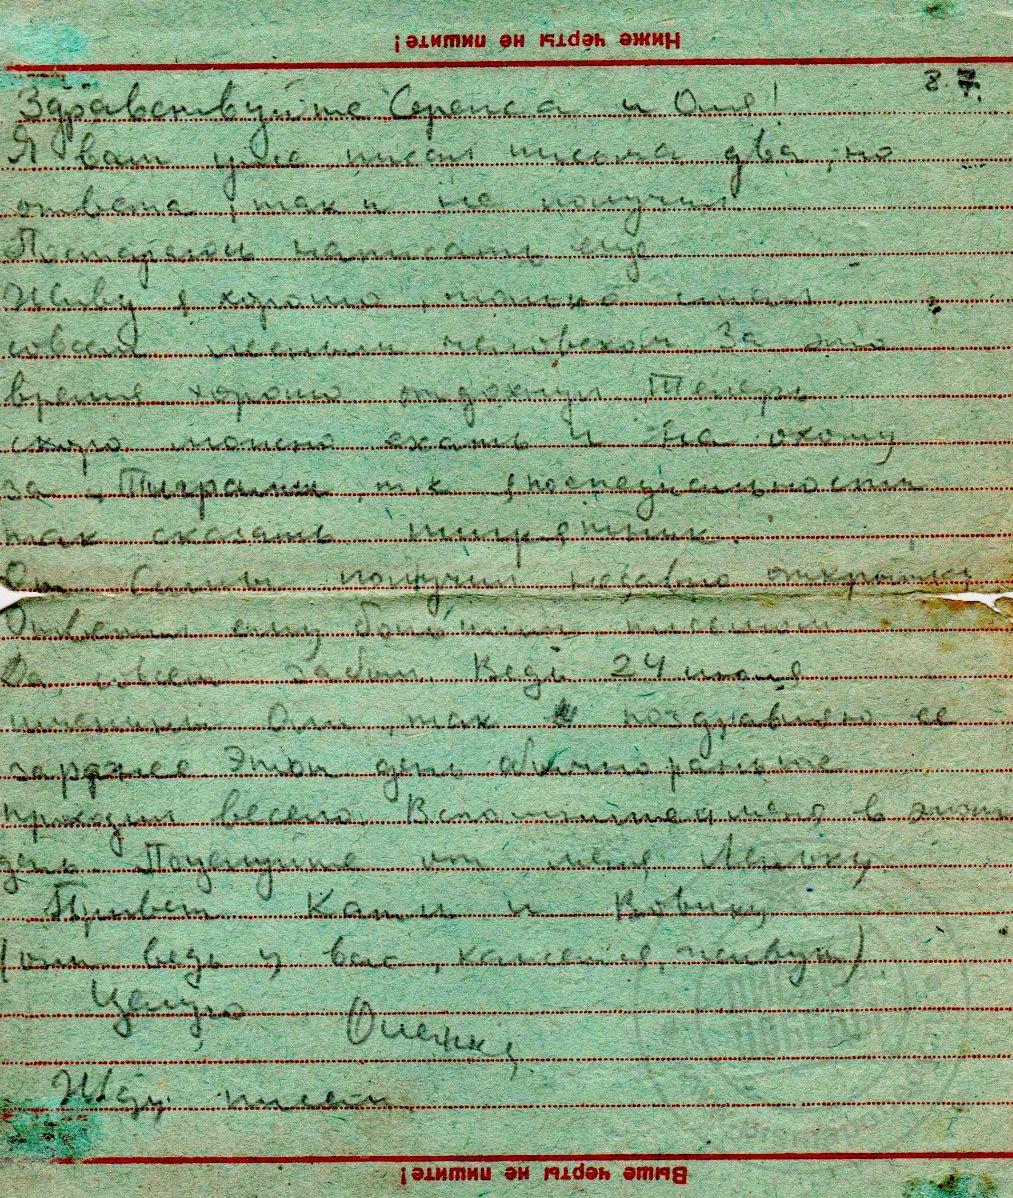 Ниже черты не пишите!
3 7.
Здравствуйте Сережа и Оля!
Я вам уже писал письма два, но
ответа так и не получил.
Постараюсь написать еще
Живу я хорошо, только стал
совсем лесным человеком За это
время хорошо отдохнул Теперь
скоро можно ехать и на охоту
за Тиграми, т.к. я по специальности
так сказать тигрятник.
От Симы получил недавно открытку
Ответил ему большим письмом
Да, совсем забыл. Ведь 24 июля
именины Оли, так поздравляю ее
заранее Этот день обычно раньше
проходил весело. Вспомните и меня в этот
день. Поцелуйте от меня Леньку
Привет Кати и Вовику
(они ведь у вас, кажется, живут)
Целую Олежка
Жду писем
Выше черты не пишите!